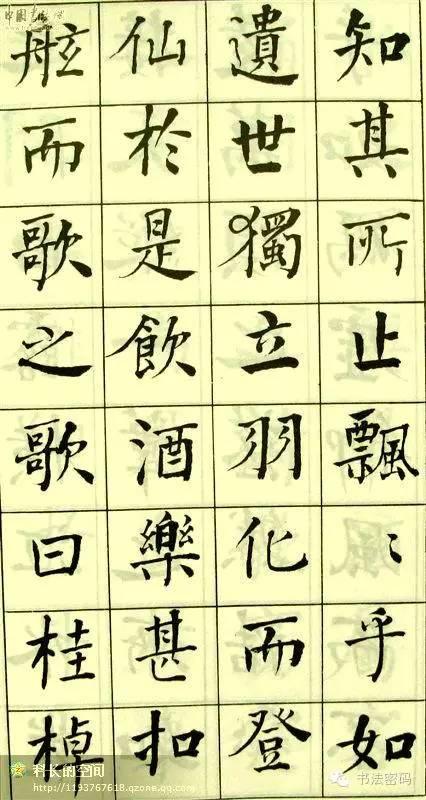 知其所止飄〻乎如
遺世獨立羽化而登
仙於是飲酒樂甚扣
舷而歌之歌曰桂棹
科长的空间
http://1193767618.qzone.qq.com
书法密码